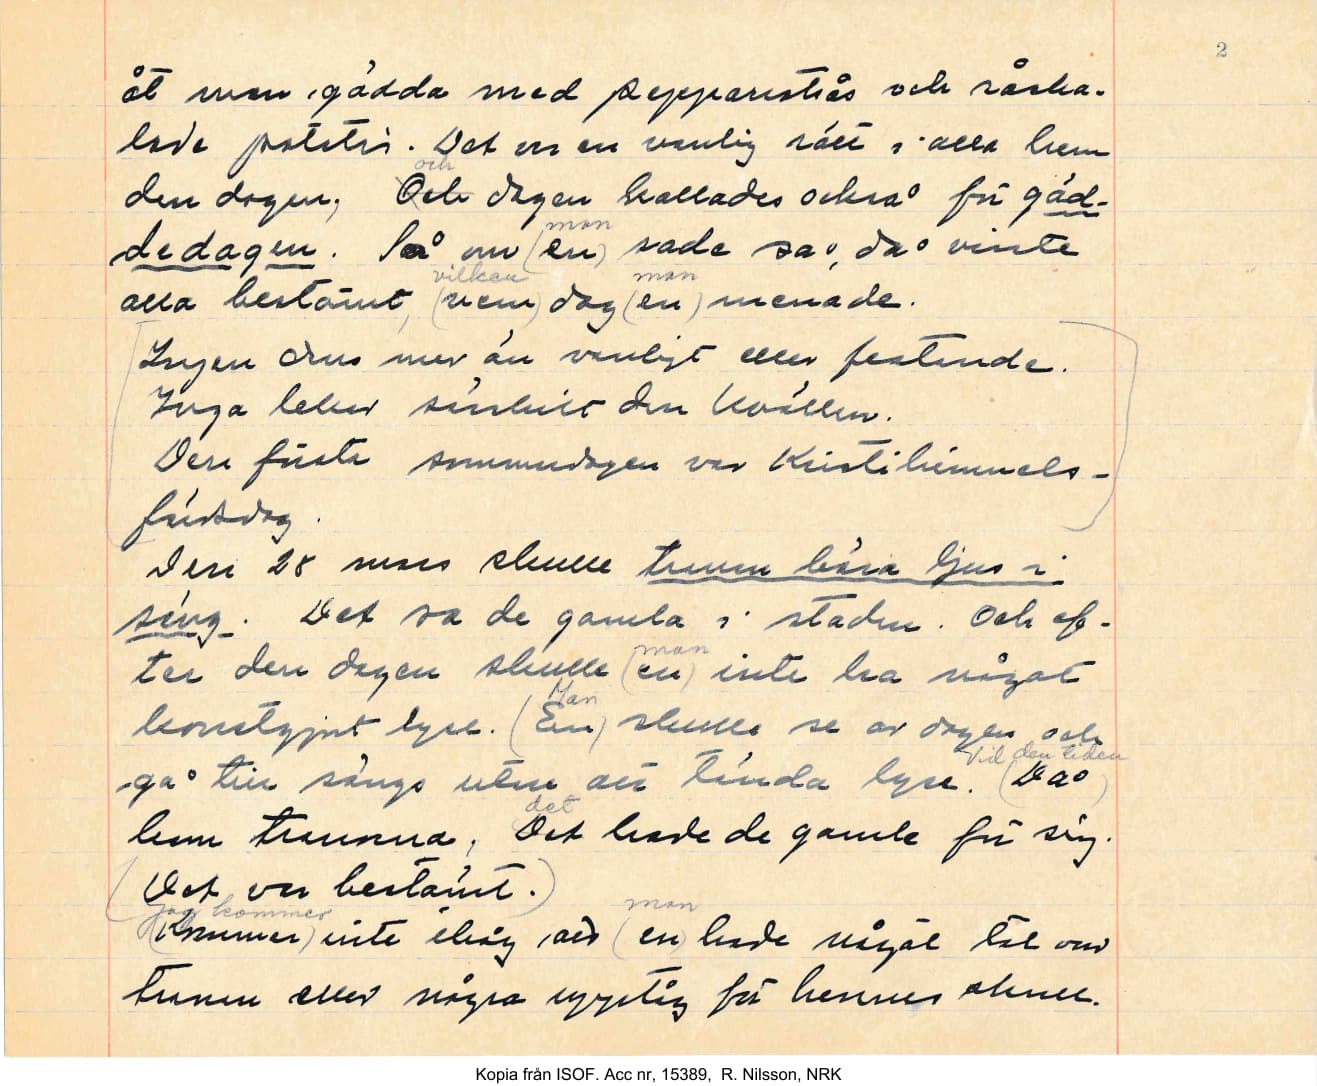 2
åt man gädda med pepparrotsås och råska-
lade potatis. Det var en vanlig rätt i alla hem
och
den dagen, Och dagen kallades också för gäd-
man
dedagen. Så om (en) sade så, då visste
vilken man
alla bestämt, (vem) dag (en) menade.
Ingen dans mer än vanligt eller festande.
Inga lekar särskilt den kvällen.
Den första sommardagen var Kristi himmels-
färdsdag.
Den 28 mars skulle tranan bära ljus i
säng. Det sa de gamla i staden. Och ef-
man
ter den dagen skulle (en) inte ha något
Man
konstgjort lyse. (En) skulle se av dagen och
Vid den tiden
gå till sängs utan att tända lyse. (Då)
det
kom tranorna, Det hade de gamla för sig.
(Det var bestämt.)
Jag kommer man
(Kommer) inte ihåg, att (en) hade något tal om
tranan eller några upptåg för hennes skull.
Kopia från ISOF. Acc nr, 15389, R. Nilsson, NRK